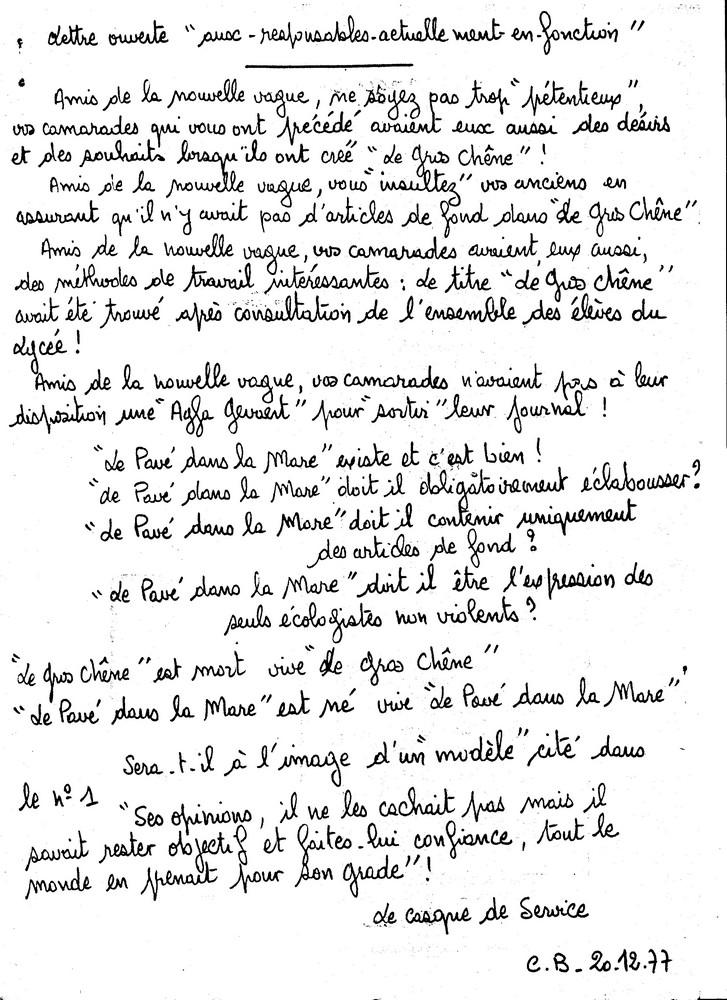 Lettre ouverte "aux-responsables-actuellement-en-fonction"
Amis de la nouvelle vague, ne soyez pas trop "pétentieux",
vos camarades qui vous ont précédé avaient eux aussi des désirs
et des souhaits lorsqu'ils ont créé "Le Gros Chêne" !
Amis de la nouvelle vague, vous "insultez" vos anciens en
assurant qu'il n'y avait pas d'articles de fond dans "Le Gros Chêne".
Amis de la nouvelle vague, vos camarades avaient eux aussi,
des méthodes de travail intéressantes : Le titre "Le Gros Chêne"
avait été trouvé après consultation de l'ensemble des élèves du
Lycée !
Amis de la nouvelle vague, vos camarades n'avaient pas à leur
disposition une "Agfa Gevaert" pour "sortir" leur journal !
"Le Pavé dans la Mare" existe et c'est bien !
"Le Pavé dans la Mare" doit il obligatoirement éclabousser ?
"Le Pavé dans la Mare" doit il contenir uniquement
des articles de fond ?
"Le Pavé dans la Mare" doit il être l'expression des
seuls écologistes non violents ?
"Le Gros Chêne" est mort vive "Le Gros Chêne"
"Le Pavé dans la Mare" est né vive "Le Pavé dans la Mare"
Sera-t-il à l'image d'un "modèle" cité dans
le n° 1
"Ses opinions, il ne les cachait pas mais il
savait rester objectif et faites-lui confiance, tout le
monde en prenait pour son grade" !
Le casque de Service
C.B - 20.12.77